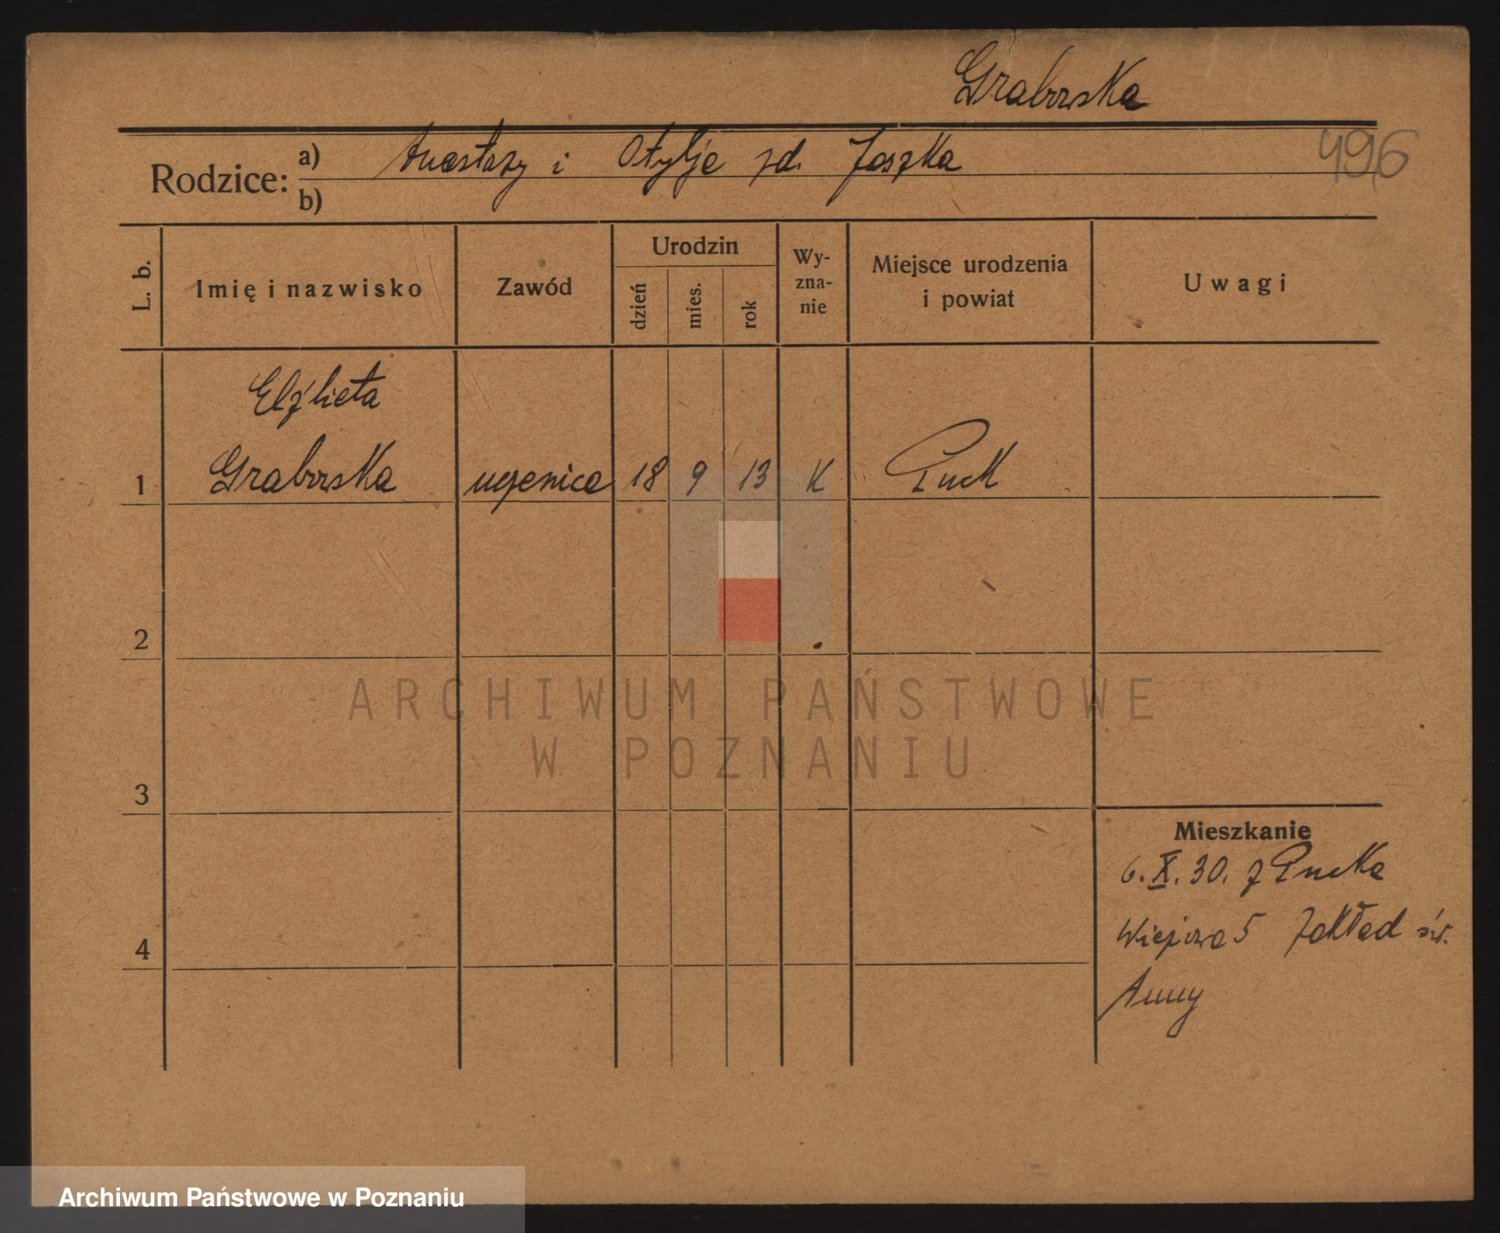 Grabowska
496
Rodzice: a) Anastazy i Otylje zd. Joszka
b)
L. b.
Imię i nazwisko
Zawód
Urodzin
dzień
mies.
rok
Wy-
zna-
nie
Miejsce urodzenia
i powiat
Uwagi
Elżbieta
1 Grabowska uczenica 18 9 13 K Puck
2
3
4
Mieszkanie
6.X.30. z Pucka
Wiejsca 5 Zakład św.
Anny
ARCHIWUM PAŃSTWOWE
W POZNANIU
Archiwum Państwowe w Poznaniu